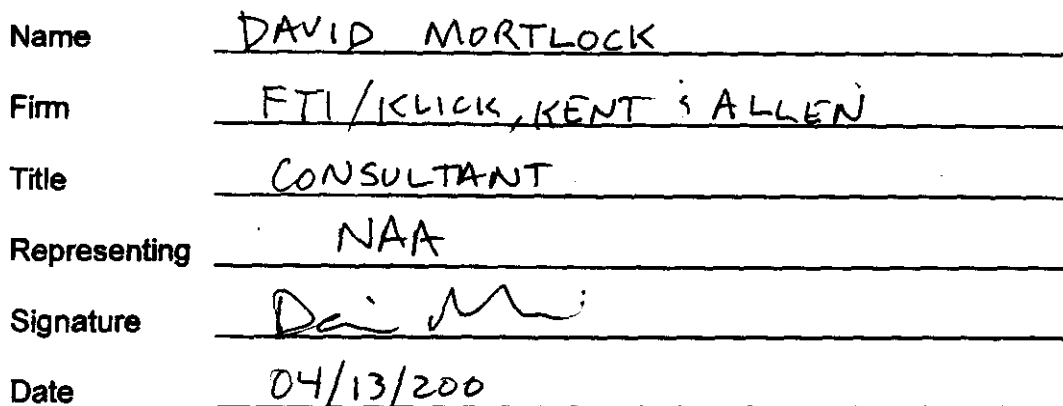 Name DAVID MORTLOCK
Firm FTI/KLICK, KENT & ALLEN
Title CONSULTANT
Representing NAA
Signature
Date 04/13/200